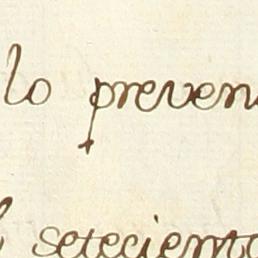 lo preven
l seteciento